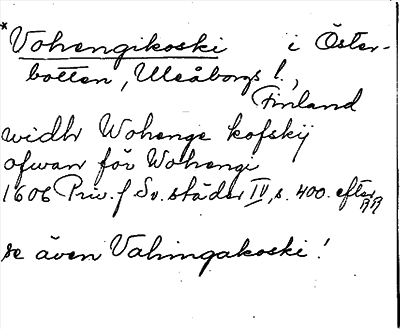 *Vohengikoski i Öster-
botten, Uleåborgs l.,
Finland
widh Wohenge kofskij
ofwan för Wohengi
1606 Priv. f Sv. städer IV, s. 400. efter RR
se även Vahingakoski!